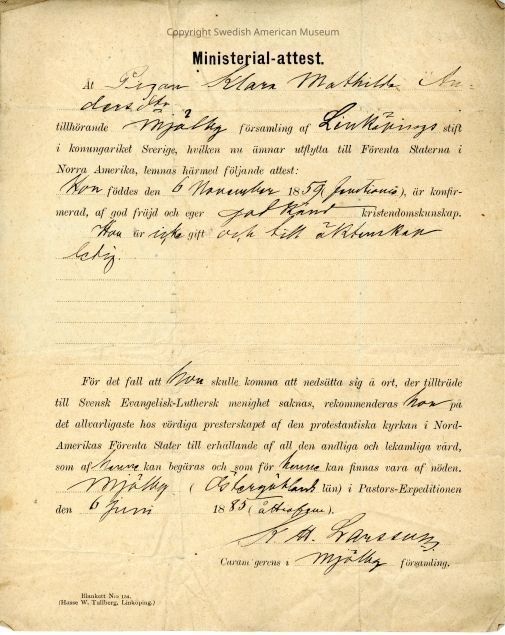 Copyright Swedish American Museum
Ministerial-attest.
Åt Pigan Klara Mathilda An-
dersdtr
tillhörande Mjölby församling af Linköpings stift
i konungariket Sverige, hvilken nu ämnar utflytta till Förenta Staterna i
Norra Amerika, lemnas härmed följande attest:
Hon föddes den 6 November 1859 (femtionio), är konfir-
merad, af god fräjd och eger god känd kristendomskunskap.
Hon är icke gift och till äktenskap
ledig.
För det fall att hon skulle komma att nedsätta sig å ort, der tillträde
till Svensk Evangelisk-Luthersk menighet saknas, rekommenderas hon på
det allvarligaste hos vördiga presterskapet af den protestantiska kyrkan i Nord-
Amerikas Förenta Stater till erhållande af all den andliga och lekamliga vård,
som af henne kan begäras och som för henne kan finnas vara af nöden.
Mjölby (Östergötlands län) i Pastors-Expeditionen
den 6 Juni 1885 (åttiofem).
Larsson
Caram gerens i Mjölby församling.
Blankett N:o 124.
(Hasse W. Tullberg, Linköping.)